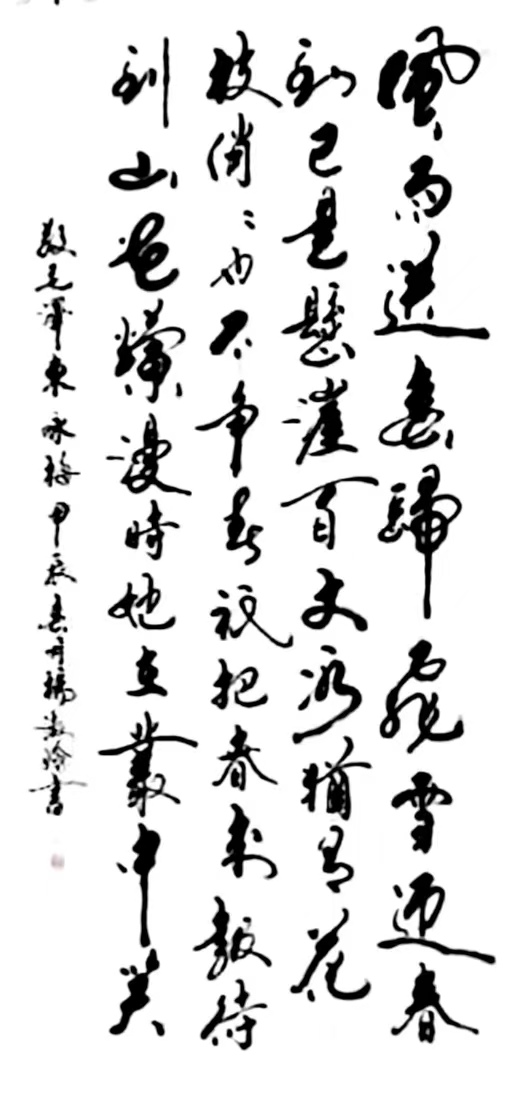 風雨送春歸飛雪迎春
到已是懸崖百丈冰猶有花
枝俏〻也不争春祇把春来報待
到山花爛漫時她在叢中笑
毛澤東咏梅甲辰春楊書